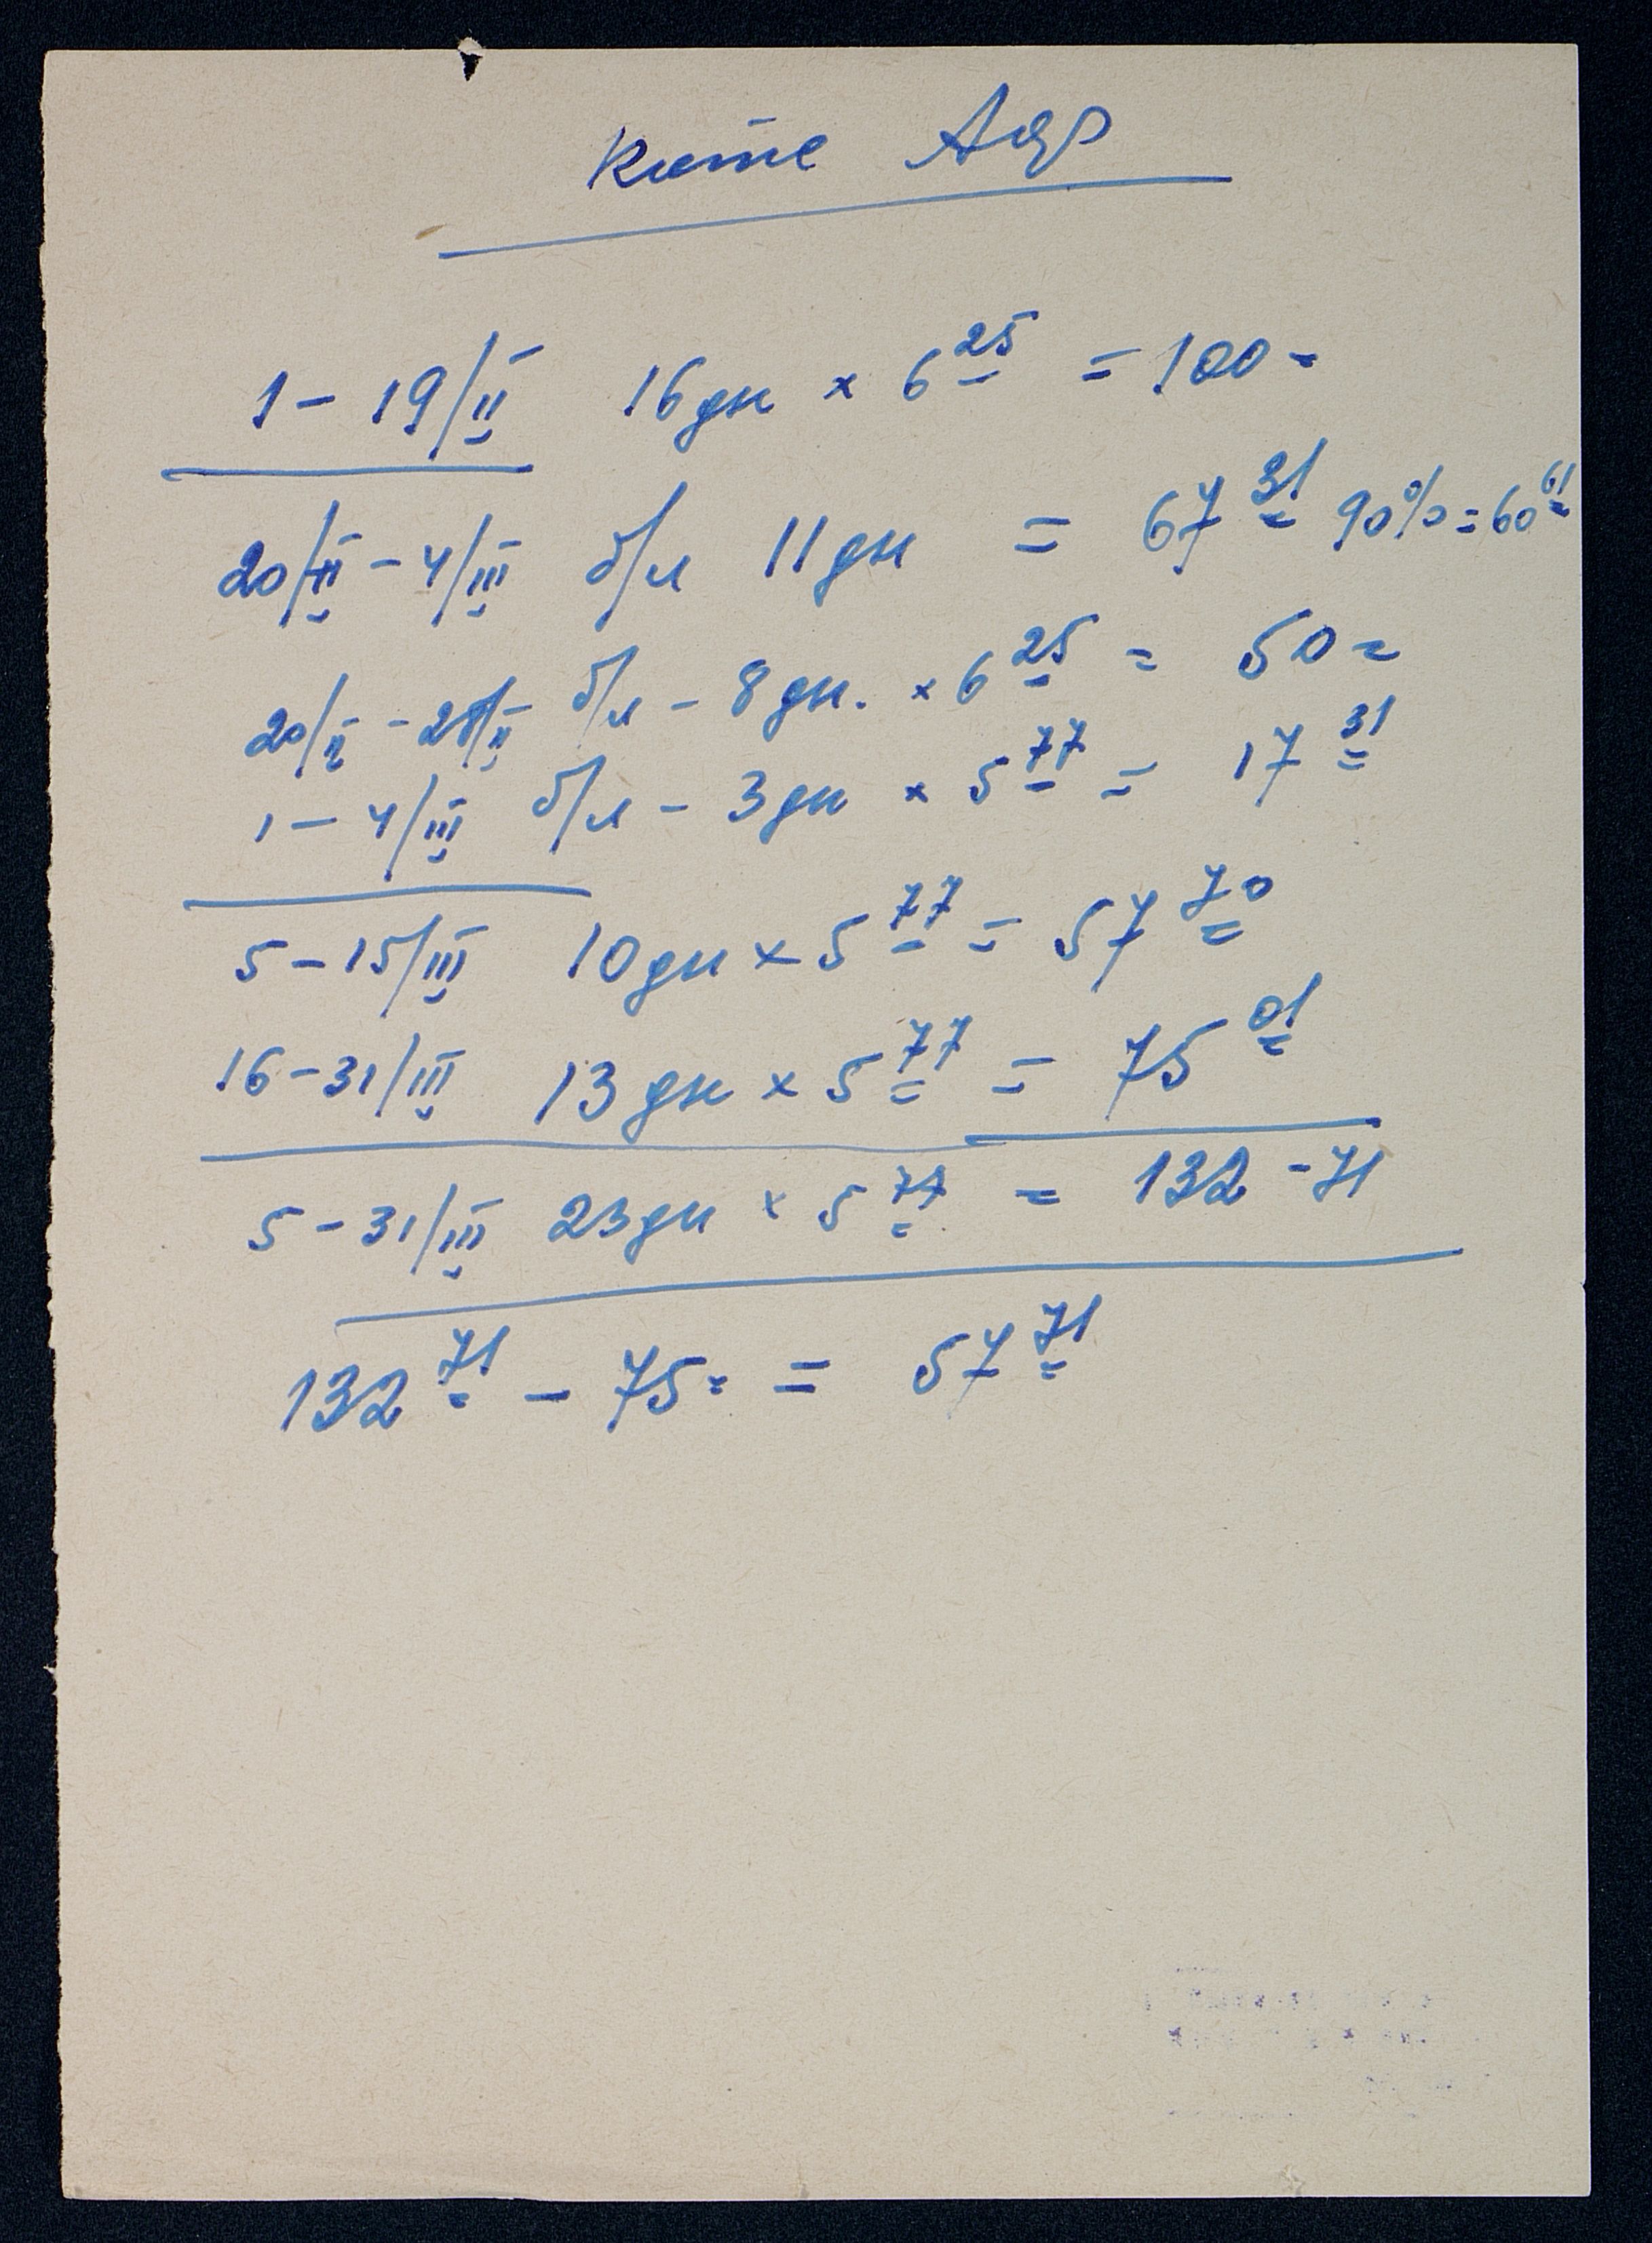 1 – 19/II 16 дн × 6 25 = 100 =
20/II – 4/III б/л 11 дн = 67 31 90% = 60 61
20/II – 28/II б/л – 8 дн. × 6 25 = 50 =
1 – 4/III б/л – 3 дн × 5 77 = 17 31
5 – 15/III 10 дн × 5 77 = 57 70
16 – 31/III 13 дн × 5 77 = 75 01
5 – 31/III 23 дн × 5 77 = 132 – 71
132 71 – 75 = = 57 71